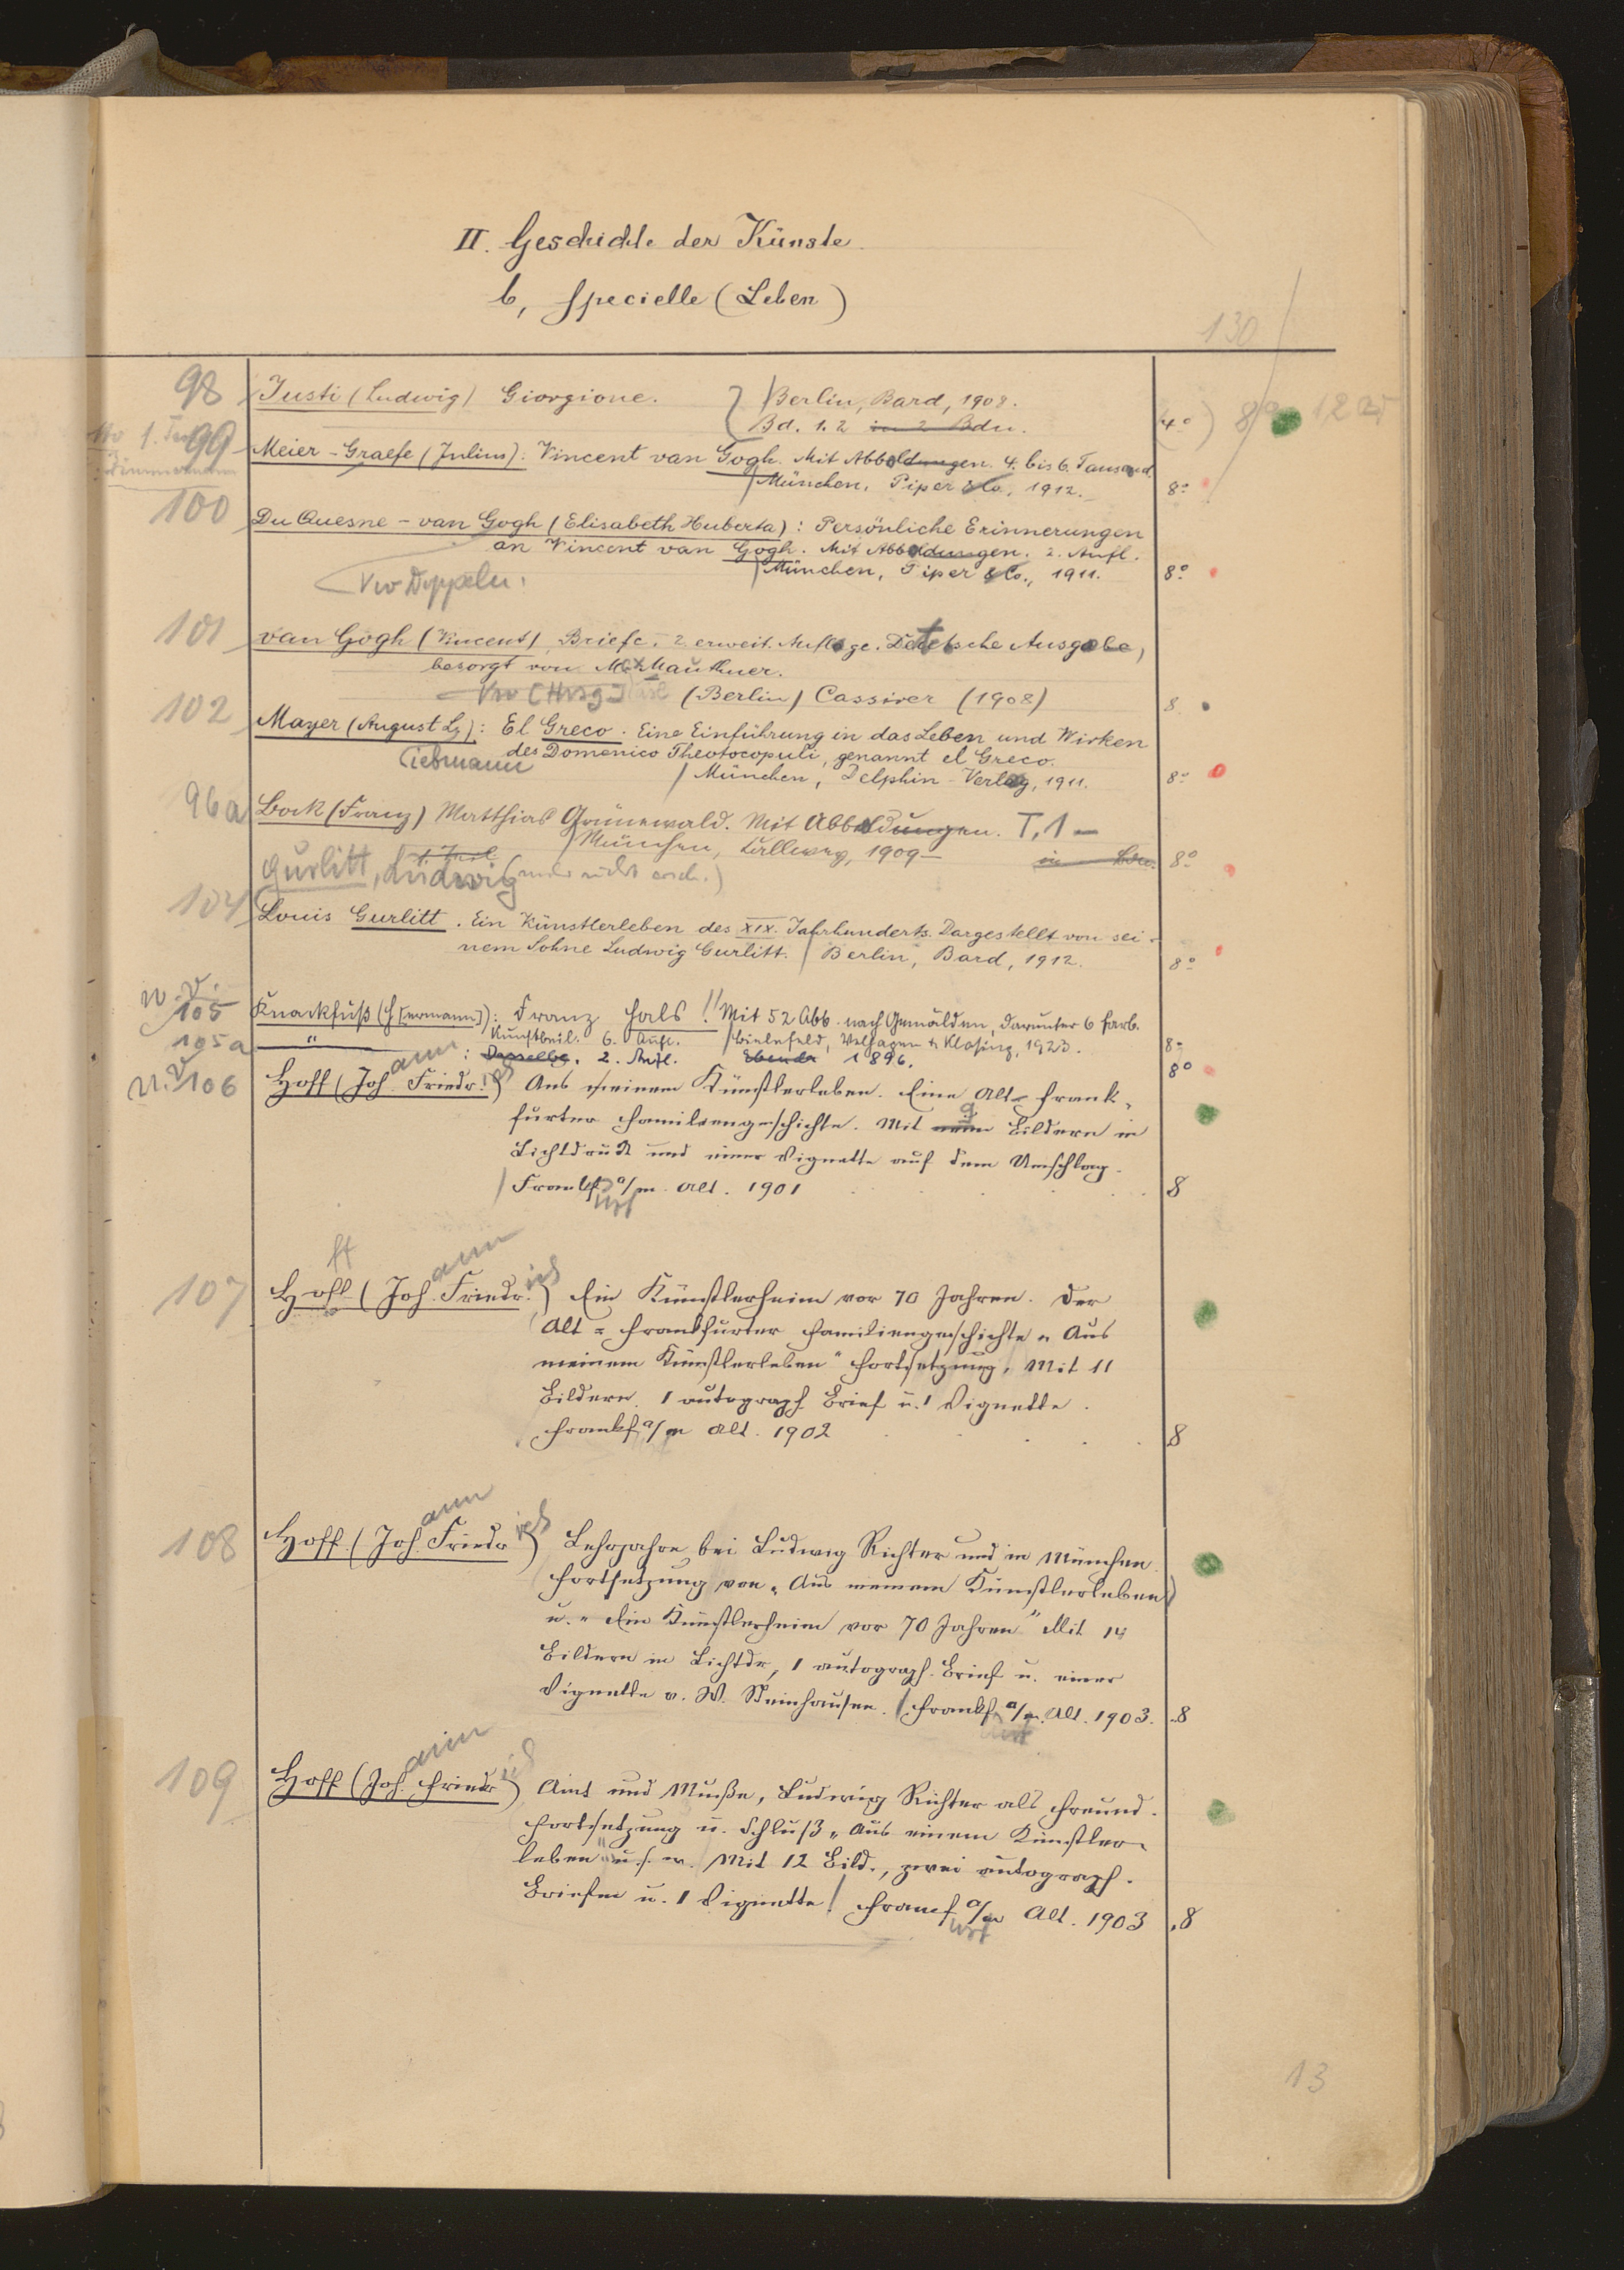 II. Geschichte der Künste.
b, specielle (Leben)
130
98 Justi (Ludwig) Giorgione. Berlin, Bard, 1908.
Bd. 1. 2 in 2 Bdn. 4°
99 Meier-Graefe (Julius): Vincent van Gogh. Mit Abbildungen. 4. bis 6. Tausend.
München, Piper & Co, 1912. 8°
100 Du Quesne-van Gogh (Elisabeth Huberta): Persönliche Erinnerungen
an Vincent van Gogh. Mit Abbildungen. 2. Aufl.
München, Piper & Co., 1911. 8°
101 van Gogh (Vincent) Briefe. 2. erweit. Auflage. Deutsche Ausgabe,
besorgt von M. Mauthner.
(Berlin) Cassirer (1908) 8
102 Mayer (August L.): El Greco. Eine Einführung in das Leben und Wirken
des Domenico Theotocopuli, genannt el Greco.
Liebmann
München, Delphin-Verlag, 1911. 8°
96a Bock (Franz) Matthias Grünewald. Mit Abbildungen. T. 1 –
München, Callwey, 1909 – 8°
Gurlitt, Ludwig
104 Louis Gurlitt. Ein Künstlerleben des XIX. Jahrhunderts. Dargestellt von sei-
nem Sohne Ludwig Gurlitt. Berlin, Bard, 1912. 8°
105 Knackfuß (H[ermann]): Franz Hals! Mit 52 Abb. nach Gemälden, darunter 6 farb.
Kunstbeil. 6. Aufl. Bielefeld, Velhagen & Klasing, 1923. 8°
105a " : Dasselbe, 2. Aufl. Ebenda 1896. 8°
106 Hoff (Johann Friedr.) Aus meinem Künstlerleben. Eine Alt-Frank-
furter Familiengeschichte. Mit neun 9 Bildern in
Lichtdruck und einer Vignette auf dem Umschlag.
Frankf a/m. Alt. 1901 8
107 Hoff (Johann Friedrich) Ein Künstlerheim vor 70 Jahren. Der
Alt-Frankfurter Familiengeschichte "Aus
meinem Künstlerleben" Fortsetzung. Mit 11
Bildern. 1 autograph. Brief u. 1 Vignette.
Frankf a/m Alt. 1902 8
108 Hoff (Johann Friedrich) Lehrjahre bei Ludwig Richter und in München
Fortsetzung von "Aus meinem Künstlerleben"
u. "Ein Künstlerheim vor 70 Jahren" Mit 14
Bildern in Lichtdr, 1 autograph. Brief u. einer
Vignette v. W. Steinhausen. Frankf a/m. Alt. 1903. 8
109 Hoff (Johann Friedrich) Amt und Muße, Ludwig Richter als Freund.
Fortsetzung u. Schluß "Aus einem Künstler-
leben" u. s. w. Mit 12 Bild., zwei autograph.
Briefen u. 1 Vignette Francf a/m Alt. 1903 8
13